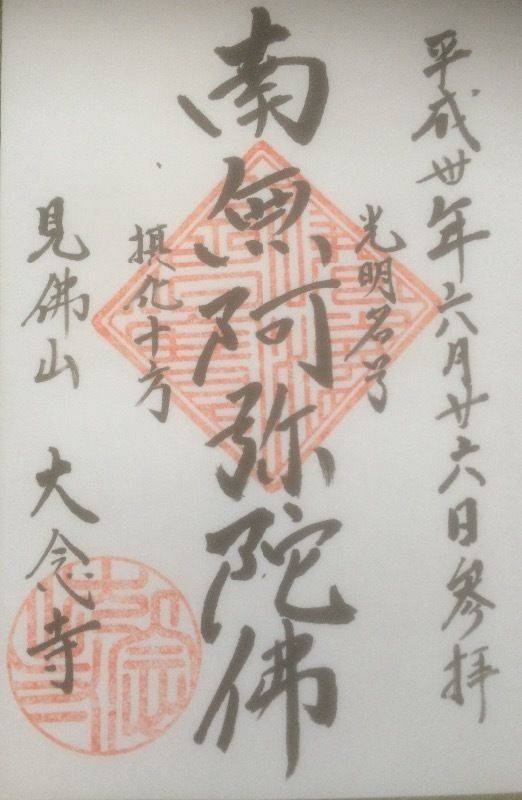 平成卅年六月廿六日參拝
光明名号
南無阿弥陀佛
摂化十方
見佛山 大念寺